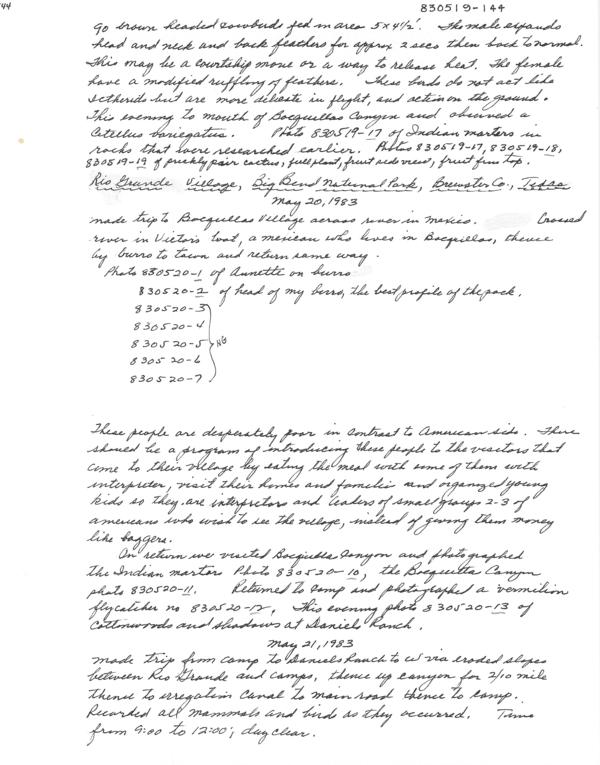 44
830519-144
90 brown headed cowbirds fed in area 5 x 4 1/2'. The male expands
head and neck and back feathers for approx 2 secs then back to normal.
This may be a courtship move or a way to release heat. The female
have a modified ruffling of feathers. These birds do not act like
Icterids but are more delicate in flight, and action on the ground.
This evening to mouth of Bocquillas Canyon and observed a
Citellus variegatus. Photo 830519-17 of Indian mortars in
rocks that were researched earlier. Photos 830519-17, 830519-18,
830519-19 of prickly pair cactus, full plant, fruit side view, fruit from top.
Rio Grande Village, Big Bend National Park, Brewster Co., Texas
May 20, 1983
made trip to Bocquillas Village across river in mexico. Crossed
river in Victor's boat, a mexican who lives in Bocquillas, thence
by burro to town and return same way.
Photo 830520-1 of Annette on burro
830520-2 of head of my burro, the best profile of the pack.
830520-3
830520-4
830520-5 NG
830520-6
830520-7
These people are desperately poor in contrast to American side. There
should be a program of introducing these people to the visitors that
come to their village by eating the meal with some of them with
interpreter, visit their homes and families and organized young
kids so they are interpretors and leaders of small groups 2-3 of
americans who wish to see the village, instead of giving them money
like baggers.
On return we visited Bocquilla Canyon and photographed
the Indian mortars Photo 830520-10, the Bocquetta Canyon
photo 830520-11. Returned to camp and photographed a vermilion
flycatcher no 830520-12. This evening photo 830520-13 of
Cottonwoods and shadows at Daniels Ranch.
May 21, 1983
made trip from camp to Daniels Ranch to W via eroded slopes
between Rio Grande and camps, thence up canyon for 2/10 mile
thence to irregation Canal to main road thence to camp.
Recorded all mammals and bird as they occurred. Time
from 9:00 to 12:00, day clear.